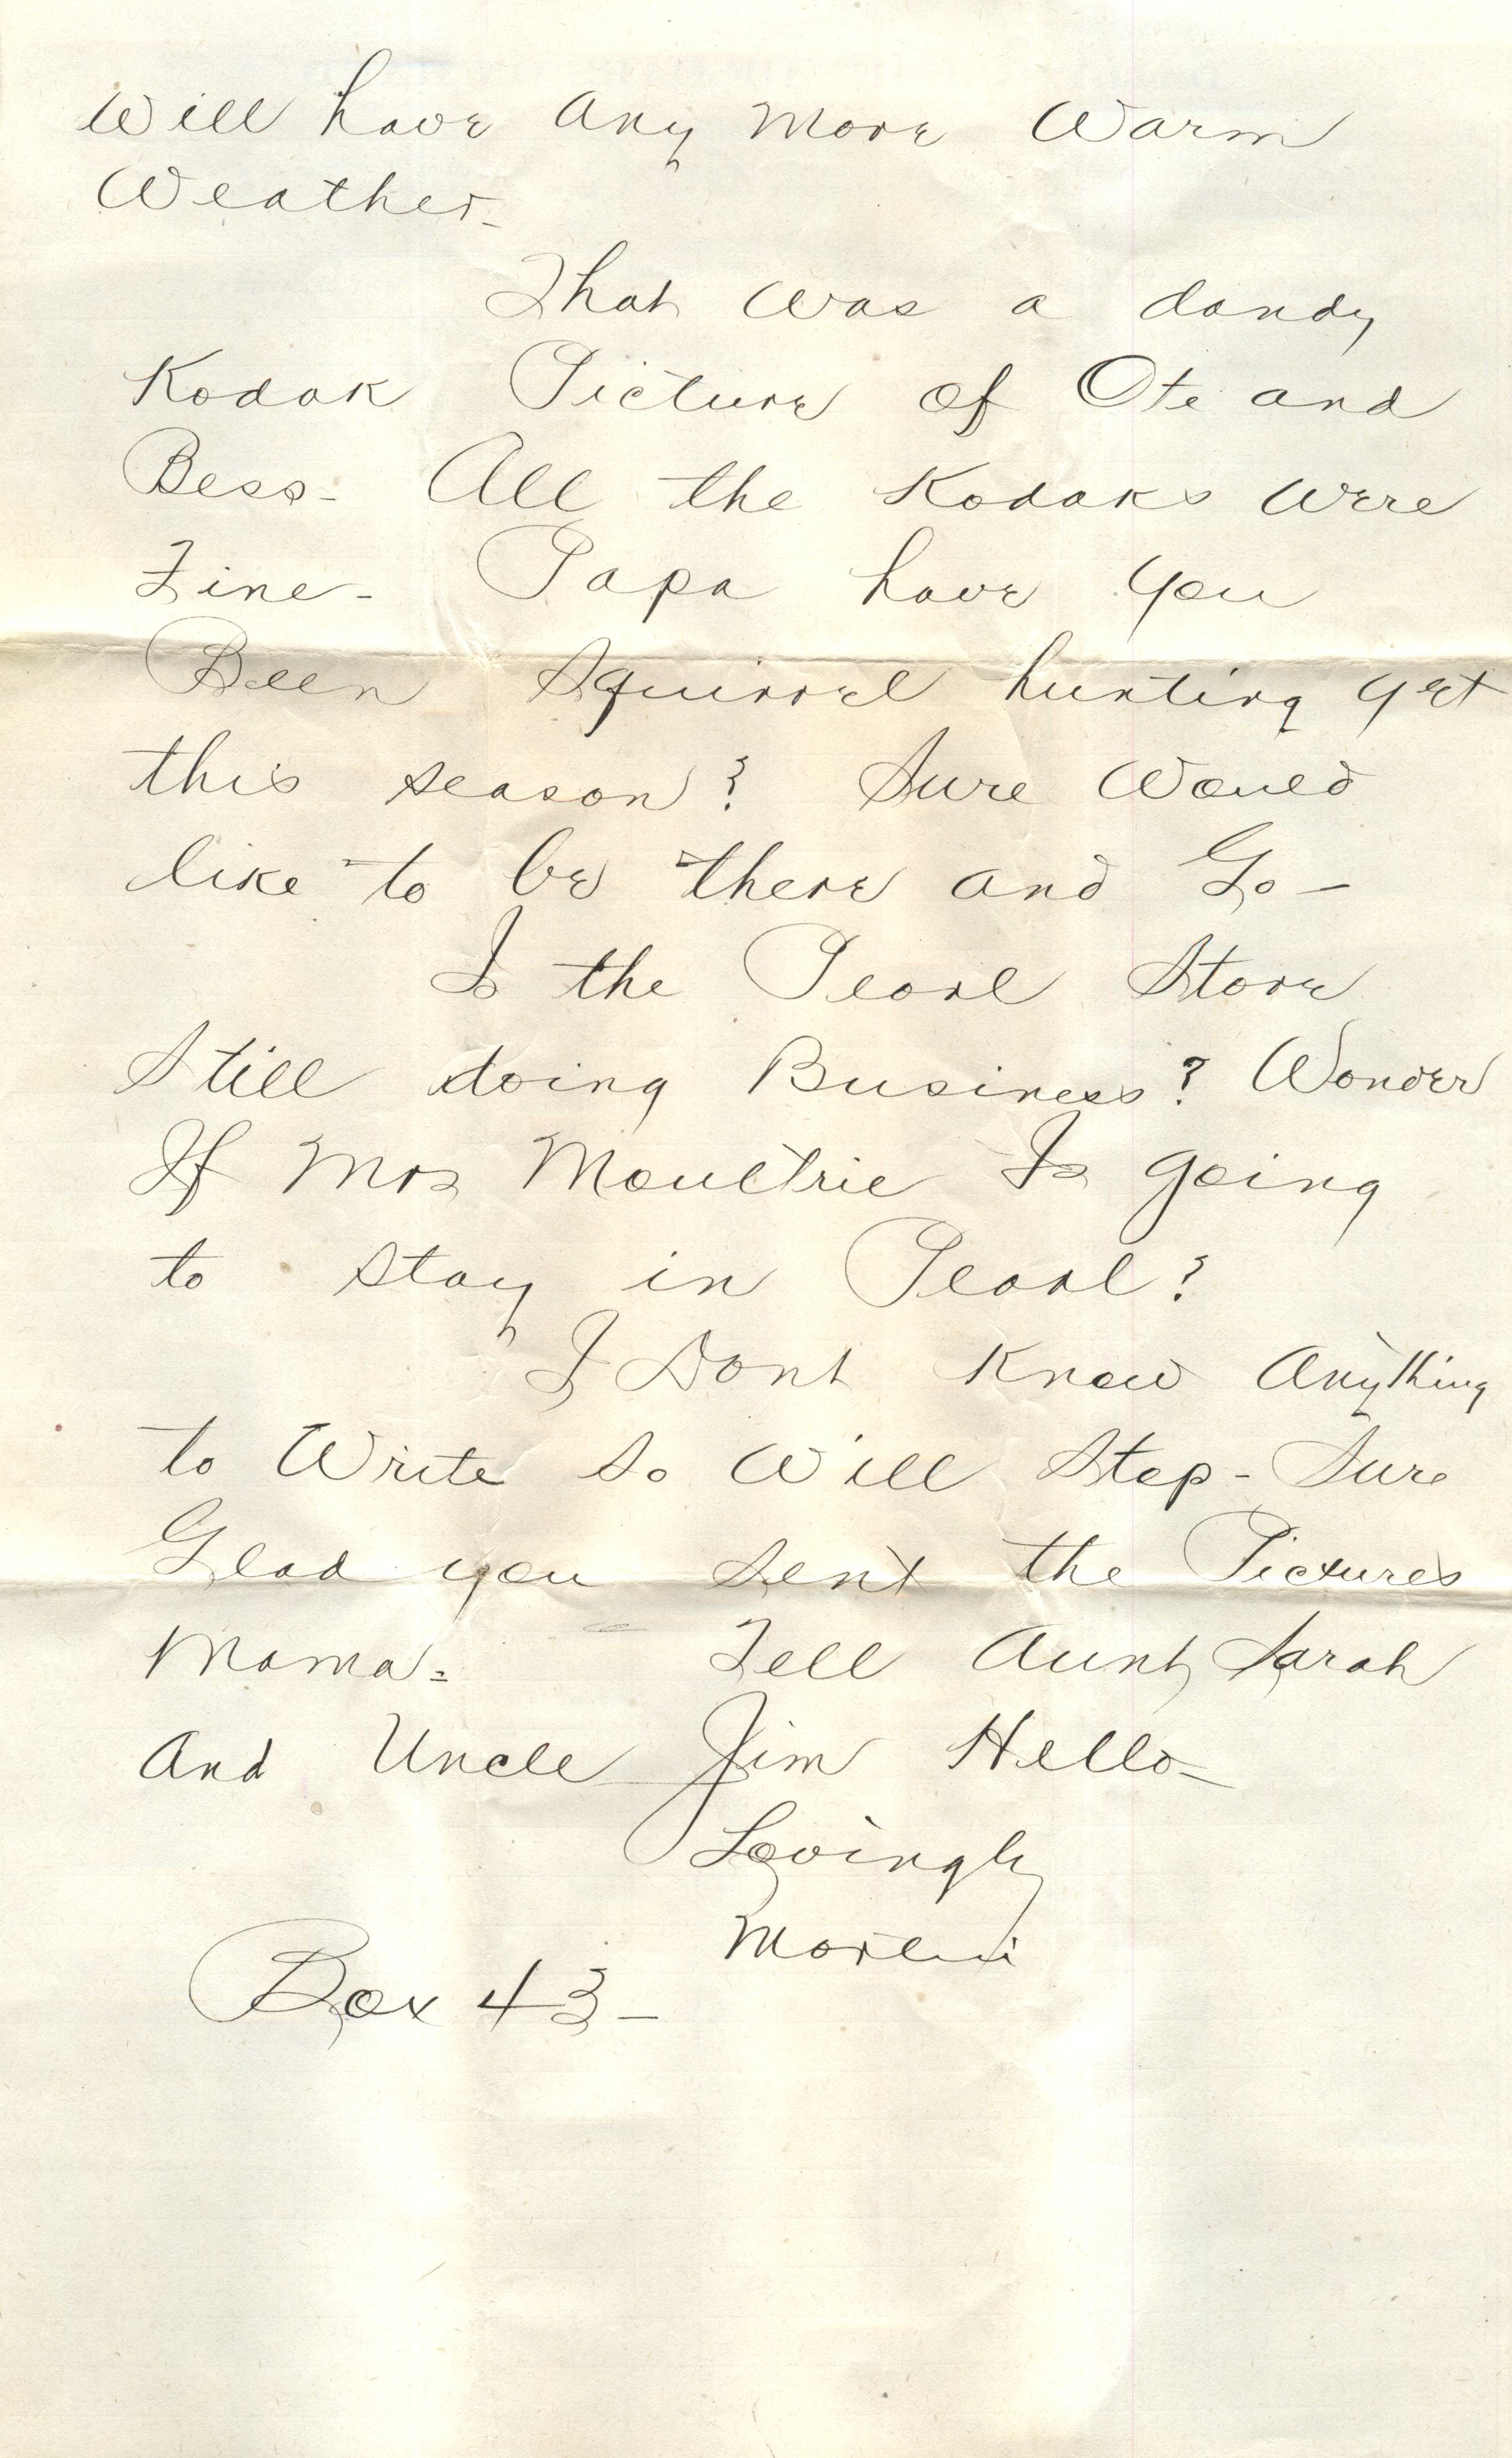 Will have Any More Warm
Weather-
That was a dandy
Kodak Picture of Ote and
Bess- All the Kodaks Were
Fine- Papa have you
Been Squirrel hunting yet
this season? Sure Would
like to be there and Go-
Is the Pearl Store
Still doing Business? Wonder
If Mrs Moultrie Is going
to stay in Pearl?
I Dont Know Anything
to Write So Will Stop- Sure
Glad you sent the Pictures
Mama- Tell Aunt Sarah
And Uncle Jim Hello-
Lovingly
Box 43-